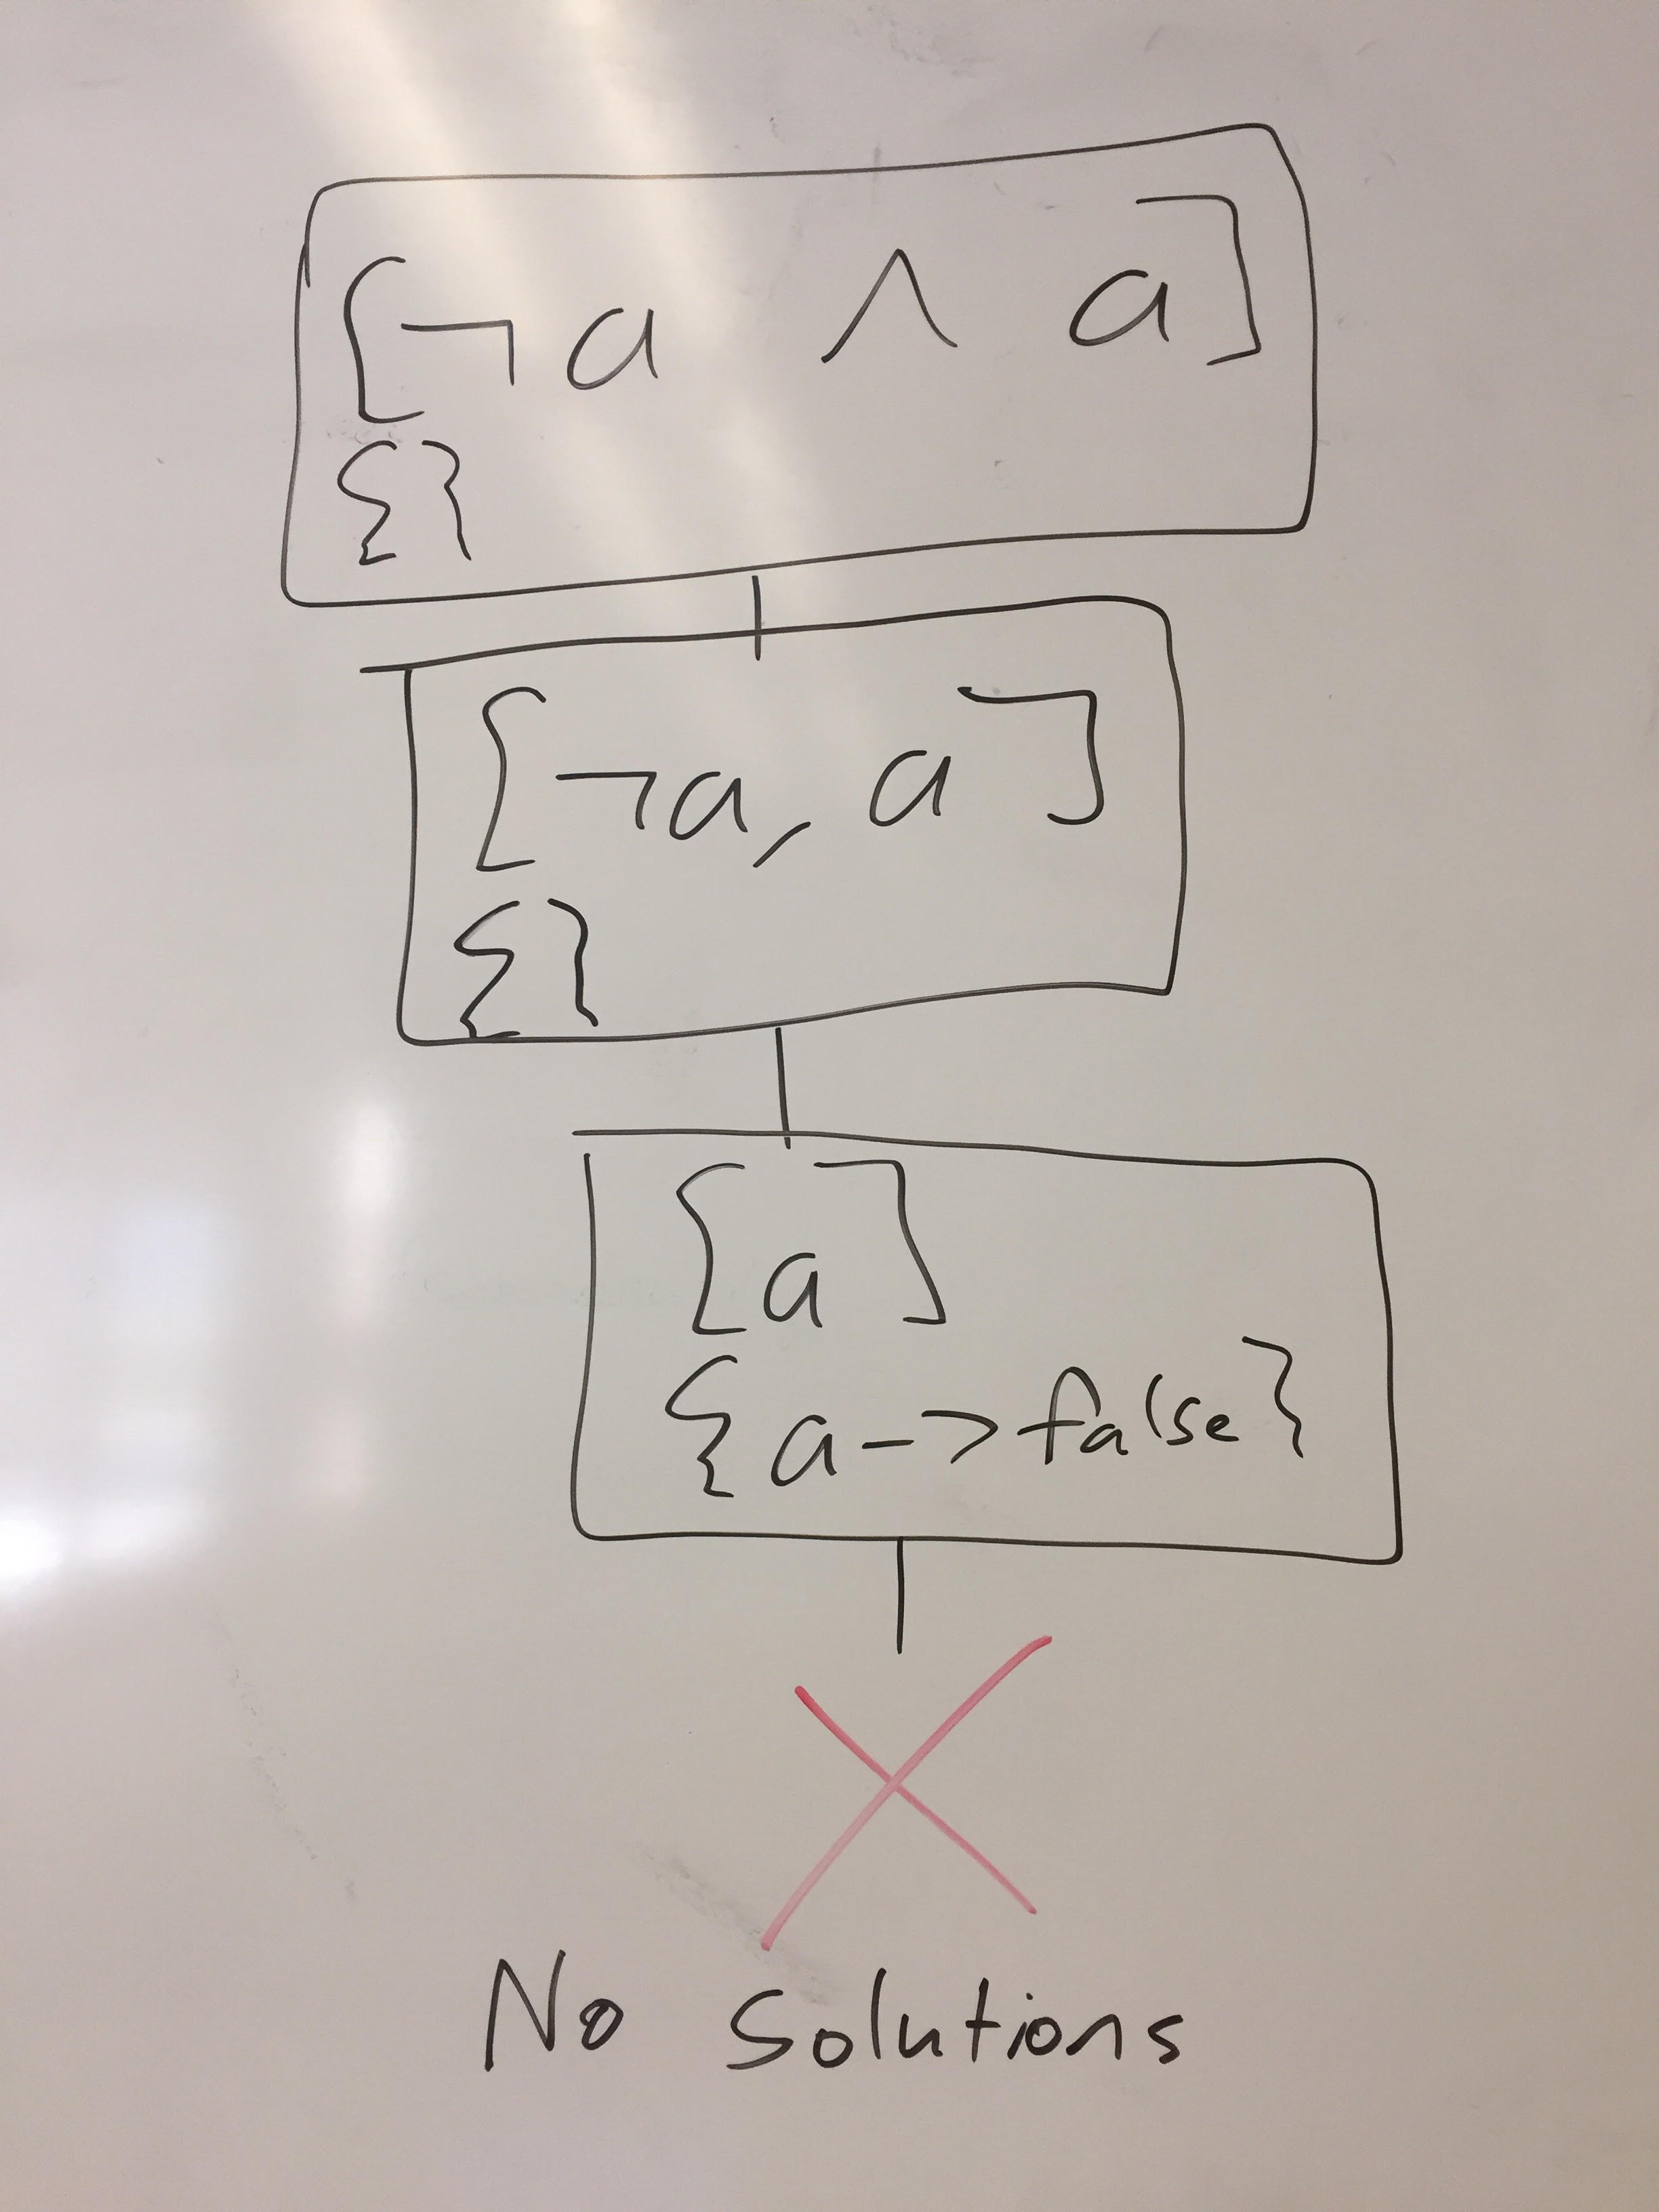 [¬a ∧ a]
{}
[¬a, a]
{}
[a]
{a->false}
No solutions